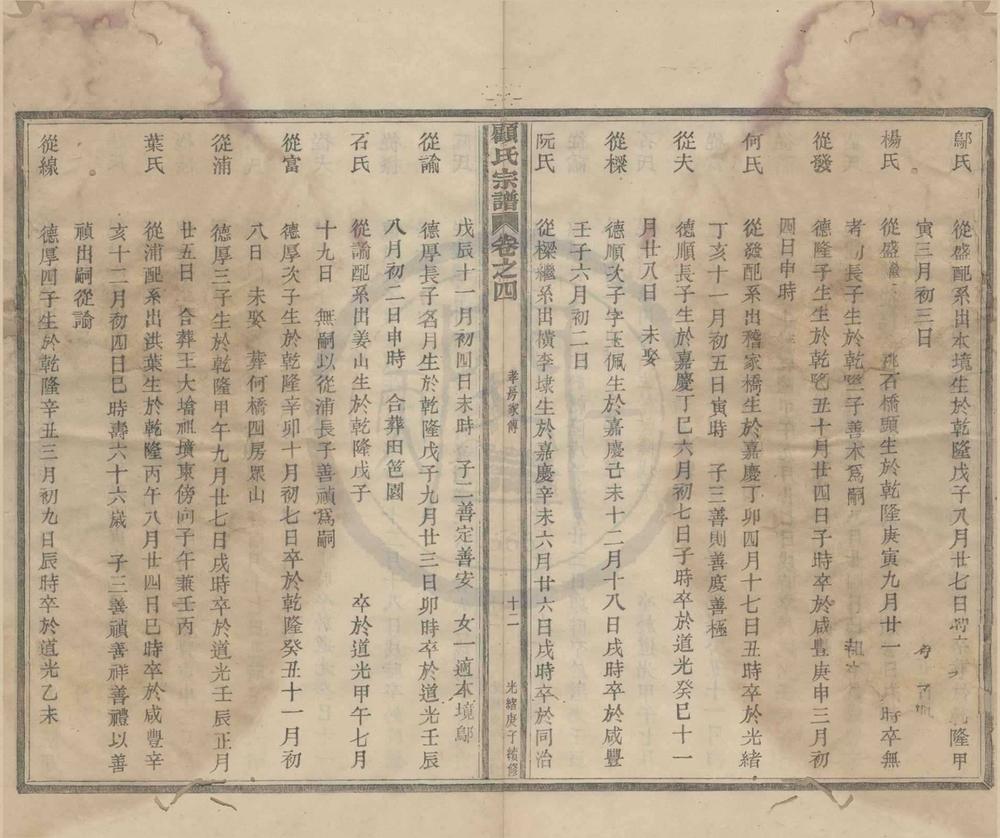 鄔氏 從盛配系出本境生於乾隆戊子八月廿七日 乾隆甲
寅三月初三日
楊氏 從盛繼 桃石橋頭生於乾隆庚寅九月廿一日 時卒無
考 長子生於乾隆 子善本爲嗣
從發 德隆子生於乾隆 丑十月廿四日子時卒於咸豐庚申三月初
四日申時
何氏 從發配系出稽家橋生於嘉慶丁卯四月十七日丑時卒於光緒
丁亥十一月初五日寅時 子三善則善度善極
從夫 德順長子生於嘉慶丁巳六月初七日子時卒於道光癸巳十一
月廿八日 未娶
從樑 德順次子字玉佩生於嘉慶己未十二月十八日戌時卒於咸豐
壬子六月初二日
阮氏 從樑繼系出橫李埭生於嘉慶辛未六月廿六日戌時卒於同治
顧氏宗譜 卷之四 孝房家傳 十二 光緒庚子續修
戊辰十一月初四日未時 子二善定善安 女一適本境鄔
從諭 德厚長子名月生於乾隆戊子九月廿三日卯時卒於道光壬辰
八月初二日申時 合葬田笆園
石氏 從諭配系出姜山生於乾隆戊子 卒於道光甲午七月
十九日 無嗣以從浦長子善禎爲嗣
從富 德厚次子生於乾隆辛卯十月初七日卒於乾隆癸丑十一月初
八日 未娶 葬何橋四房眾山
從浦 德厚三子生於乾隆甲午九月廿七日戌時卒於道光壬辰正月
廿五日 合葬王大墖祖墳東傍向子午兼壬丙
葉氏 從浦配系出洪葉生於乾隆丙午八月廿四日巳時卒於咸豐辛
亥十二月初四日巳時壽六十六歲 子三善禎善祥善禮以善
禎出嗣從諭
從線 德厚四子生於乾隆辛丑三月初九日辰時卒於道光乙未